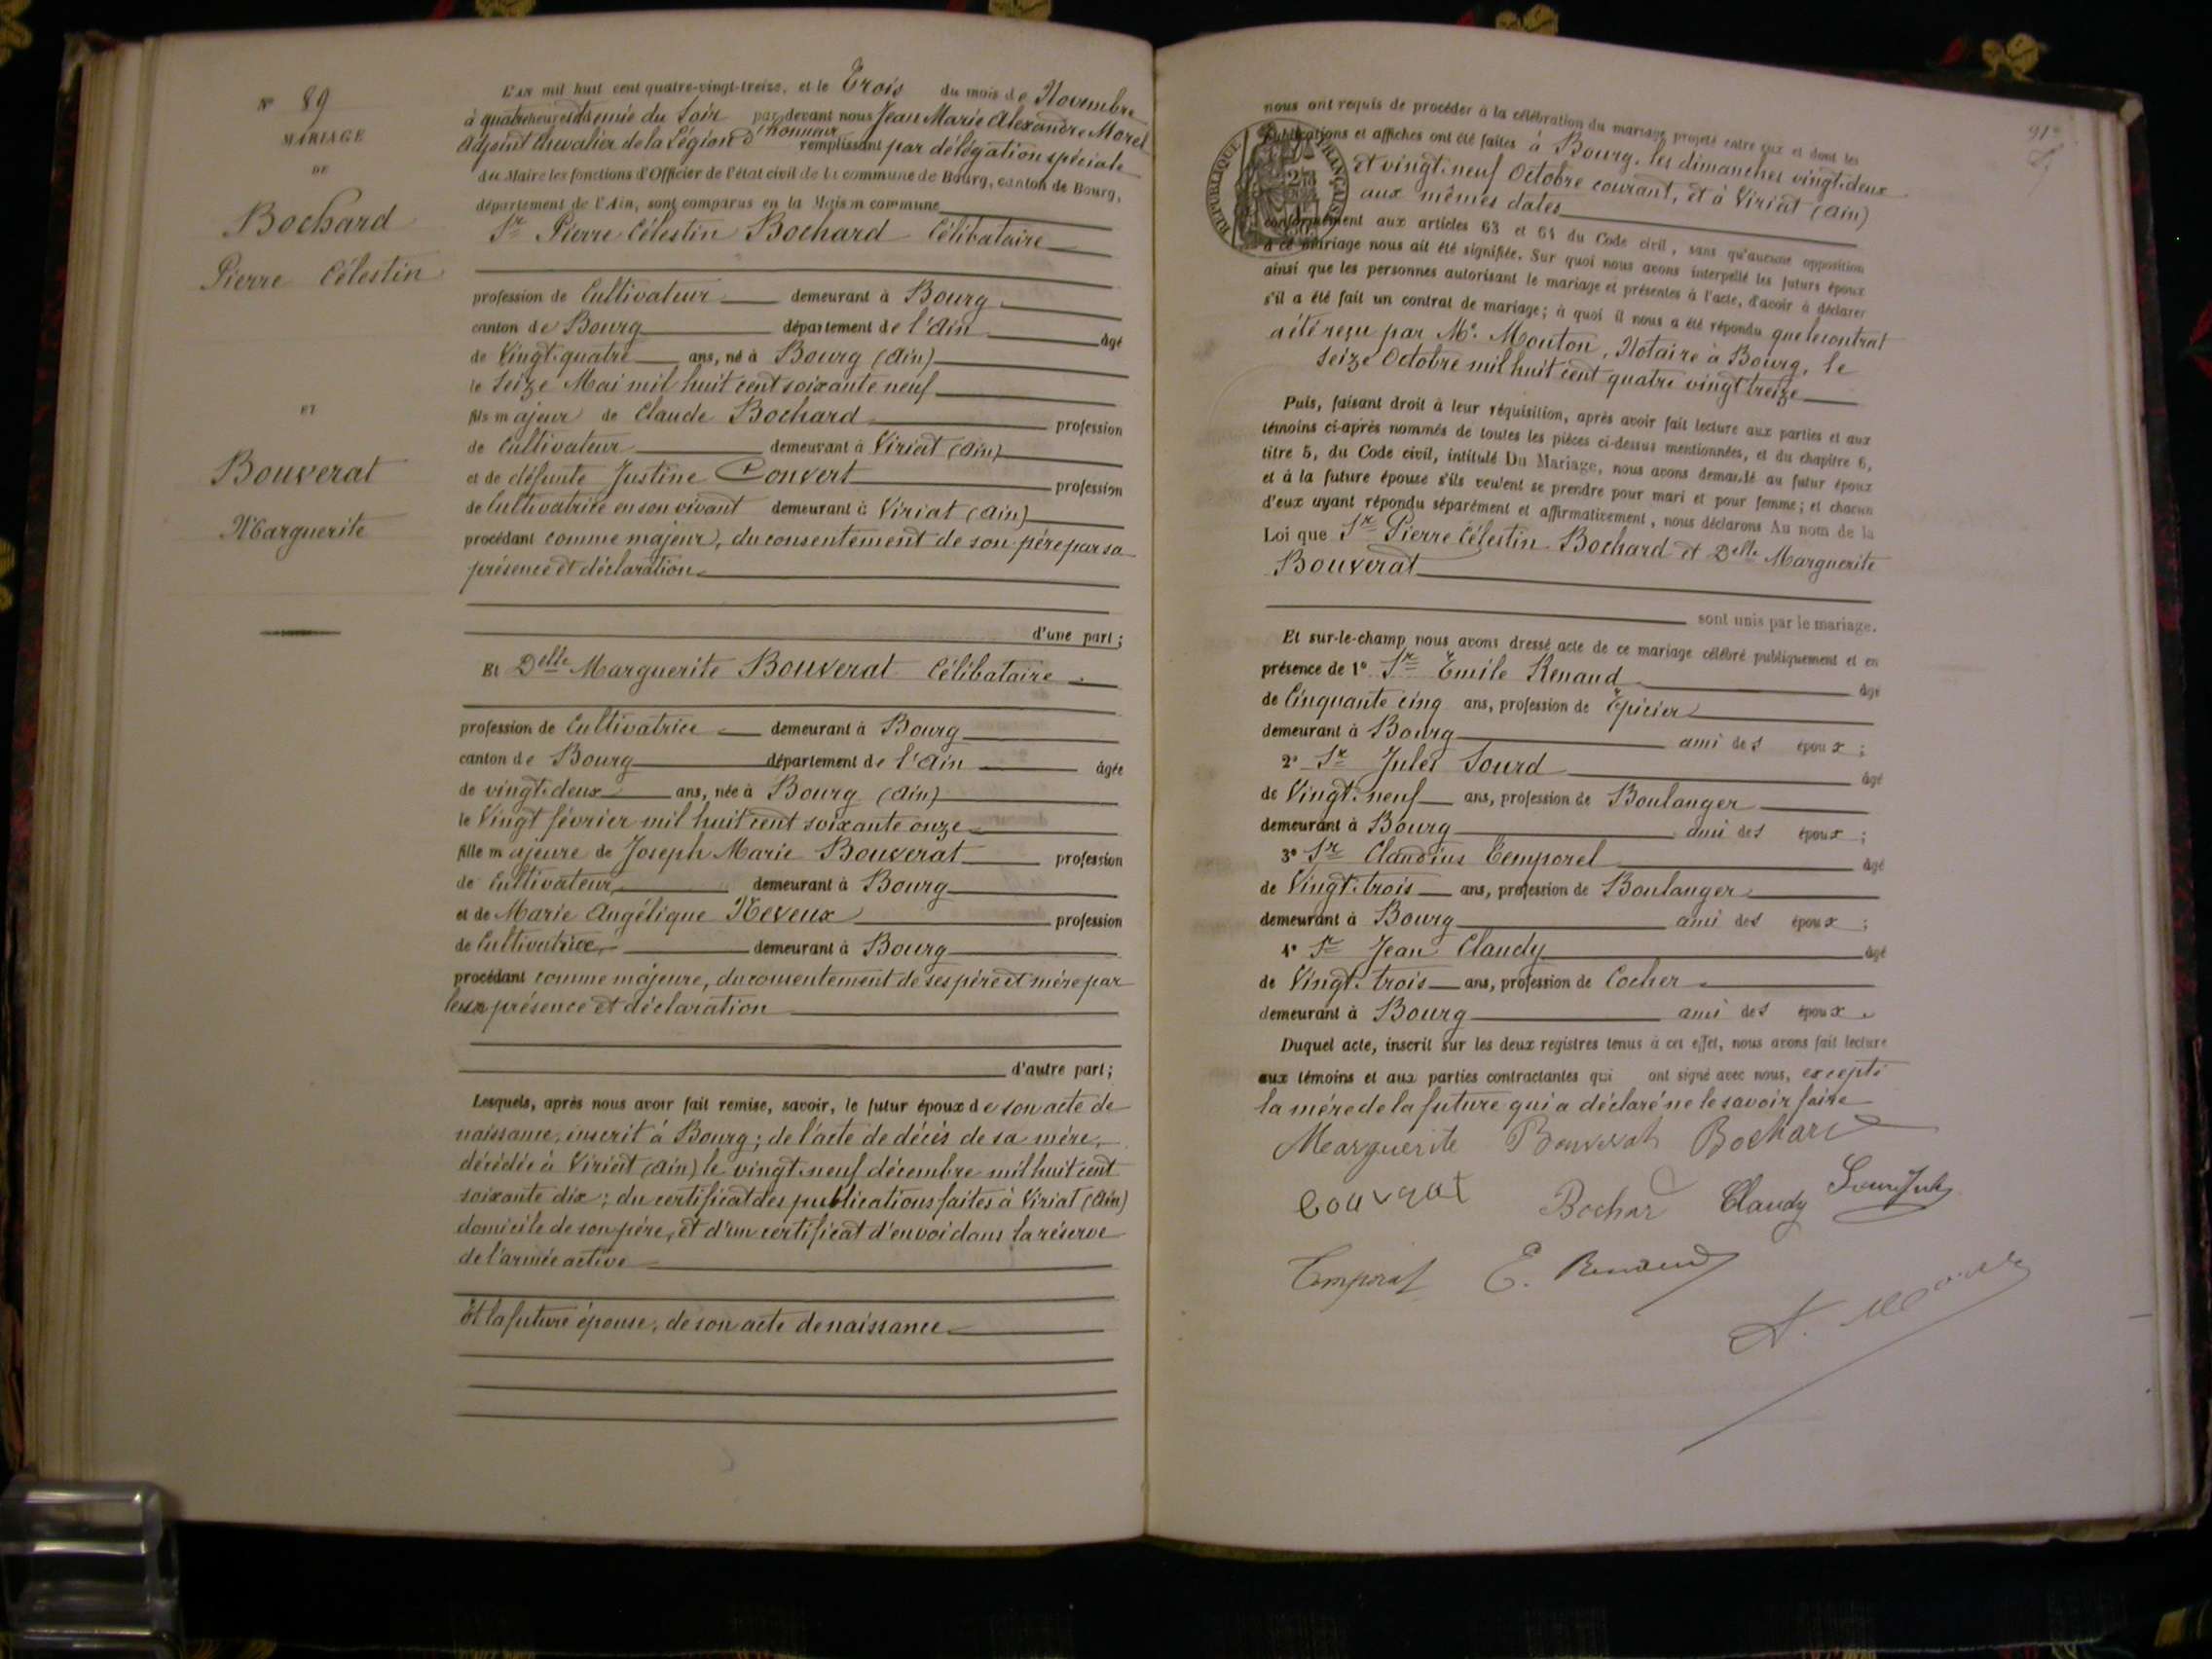 N° 89
MARIAGE
DE
Bochard
Pierre Célestin
ET
Bouverat
Marguerite
L'an mil huit cent quatre-vingt-treize, et le Trois du mois de Novembre
à quatre heures et demie du soir par devant nous Jean Marie Alexandre Morel
Adjoint Chevalier de la Légion d'honneur remplissant par délégation spéciale
du Maire les fonctions d'Officier de l'état civil de la commune de Bourg, canton de Bourg,
département de l'Ain, sont comparus en la Maison commune
Sr Pierre Célestin Bochard Célibataire
profession de Cultivateur demeurant à Bourg
canton de Bourg département de l'Ain âgé
de Vingt-quatre ans, né à Bourg (Ain)
le Seize Mai mil huit cent soixante neuf
fils majeur de Claude Bochard profession
de Cultivateur demeurant à Viriat (Ain)
et de défunte Justine Convert profession
de Cultivatrice en son vivant demeurant à Viriat (Ain)
procédant comme majeur, du consentement de son père par sa
présence et déclaration
d'une part;
Et Delle Marguerite Bouverat Célibataire
profession de Cultivatrice demeurant à Bourg
canton de Bourg département de l'Ain âgée
de vingt-deux ans, née à Bourg (Ain)
le Vingt février mil huit cent soixante onze
fille majeure de Joseph Marie Bouverat profession
de Cultivateur demeurant à Bourg
et de Marie Angélique Neveux profession
de Cultivatrice demeurant à Bourg
procédant comme majeure, du consentement de ses père et mère par
leur présence et déclaration
d'autre part;
Lesquels, après nous avoir fait remise, savoir, le futur époux de son acte de
naissance, inscrit à Bourg; de l'acte de décès de sa mère,
décédée à Viriat (Ain) le vingt-neuf décembre mil huit cent
soixante dix; du certificat des publications faites à Viriat (Ain)
domicile de son père, et d'un certificat d'envoi dans la réserve
de l'armée active
Et la future épouse, de son acte de naissance
91
nous ont requis de procéder à la célébration du mariage projeté entre eux et dont les
publications et affiches ont été faites à Bourg, les dimanches vingt-deux
et vingt-neuf Octobre courant, et à Viriat (Ain)
aux mêmes dates
RÉPUBLIQUE FRANÇAISE
conformément aux articles 63 et 64 du Code civil, sans qu'aucune opposition
à ce mariage nous ait été signifiée. Sur quoi nous avons interpellé les futurs époux
ainsi que les personnes autorisant le mariage et présentes à l'acte, d'avoir à déclarer
s'il a été fait un contrat de mariage; à quoi il nous a été répondu que le contrat
a été reçu par Me. Mouton, Notaire à Bourg, le
Seize Octobre mil huit cent quatre vingt treize
Puis, faisant droit à leur réquisition, après avoir fait lecture aux parties et aux
témoins ci-après nommés de toutes les pièces ci-dessus mentionnées, et du chapitre 6,
titre 5, du Code civil, intitulé Du Mariage, nous avons demandé au futur époux
et à la future épouse s'ils veulent se prendre pour mari et pour femme; et chacun
d'eux ayant répondu séparément et affirmativement, nous déclarons Au nom de la
Loi que Sr Pierre Célestin Bochard et Delle Marguerite
Bouverat
sont unis par le mariage.
Et sur-le-champ nous avons dressé acte de ce mariage célébré publiquement et en
présence de 1° Sr Emile Renaud âgé
de Cinquante cinq ans, profession de Epicier
demeurant à Bourg ami des époux;
2° Sr Jules Sourd âgé
de Vingt-neuf ans, profession de Boulanger
demeurant à Bourg ami des époux;
3° Sr Claudius Temporel âgé
de Vingt-trois ans, profession de Boulanger
demeurant à Bourg ami des époux;
4° Sr Jean Claudy âgé
de Vingt-trois ans, profession de Cocher
demeurant à Bourg ami des époux.
Duquel acte, inscrit sur les deux registres tenus à cet effet, nous avons fait lecture
aux témoins et aux parties contractantes qui ont signé avec nous, excepté
la mère de la future qui a déclaré ne le savoir faire
Marguerite Bouverat Bochard
Bouvrat Bochard Claudy Sourd Jules
Temporel E. Renaud
A. Morel